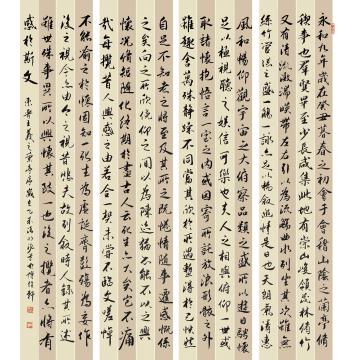 永和九年歲在癸丑暮春之初會于會稽山陰之蘭亭脩
禊事也羣賢畢至少長咸集此地有崇山峻領茂林脩竹
又有清流激湍暎帶左右引以為流觴曲水列坐其次雖無
絲竹管弦之盛一觴一詠亦足以暢敘幽情是日也天朗氣清惠
風和暢仰觀宇宙之大俯察品類之盛所以遊目騁懷
足以極視聽之娛信可樂也夫人之相與俯仰一世或
取諸懷抱悟言一室之內或因寄所託放浪形骸之外
雖趣舍萬殊靜躁不同當其欣於所遇暫得於己快然
自足不知老之將至及其所之既惓情隨事遷感慨係
之矣向之所欣俛仰之間以為陳迹猶不能不以之興
懷況脩短隨化終期於盡古人云死生亦大矣豈不痛
哉每攬昔人興感之由若合一契未嘗不臨文嗟悼
不能喻之於懷固知一死生為虛誕齊彭殤為妄作
後之視今亦由今之視昔悲夫故列敘時人錄其所述
雖世殊事異所以興懷其致一也後之攬者亦將有
感於斯文 東晉王羲之蘭亭序